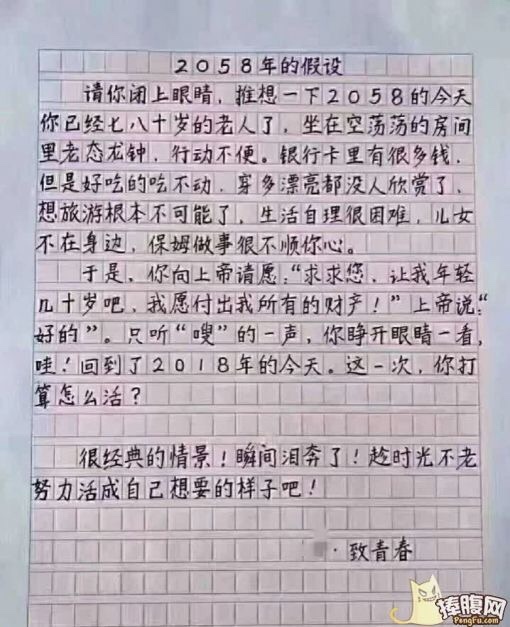 2058年的假设
请你闭上眼睛，推想一下2058的今天
你已经七八十岁的老人了，坐在空荡荡的房间
里老态龙钟，行动不便。银行卡里有很多钱，
但是好吃的吃不动，穿多漂亮都没人欣赏了，
想旅游根本不可能了，生活自理很困难，儿女
不在身边，保姆做事很不顺你心。
于是，你向上帝请愿：“求求您，让我年轻
几十岁吧，我愿付出我所有的财产！”上帝说：“
好的”。只听“嗖”的一声，你睁开眼睛一看，
哇！回到了2018年的今天。这一次，你打
算怎么活？
很经典的情景！瞬间泪奔了！趁时光不老
努力活成自己想要的样子吧！
·致青春
捧腹网
PengFu.com